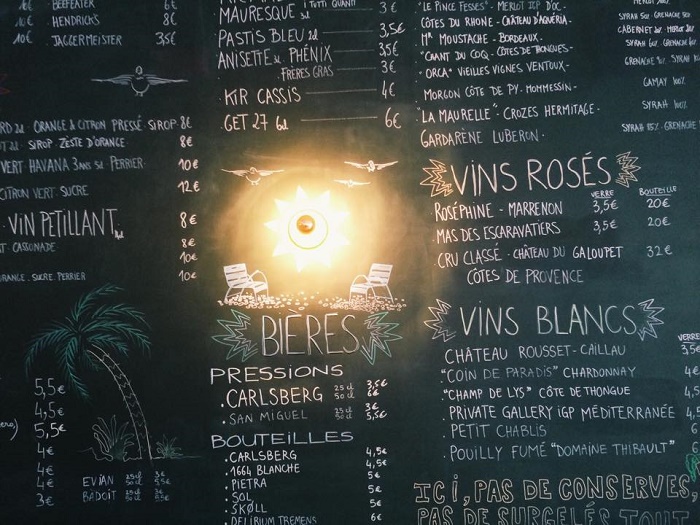 10€ BEEFEATER 6€
10€ HENDRICKS 3€
10€ JAGGERMEISTER 3,5€
ORANGE & CITRON PRESSÉ SIROP 8€
SIROP ZESTE D'ORANGE 8€
VERT HAVANA 3 ANS PERRIER 10€
CITRON VERT SUCRE 12€
VIN PETILLANT 8€
CASSONADE 8€
10€
SUCRE PERRIER 10€
5,5€
4,5€
5,5€
4€
4€
4€
3€
EVIAN
BADOIT
MAURESQUE 3€
PASTIS BLEU 2cl 3,5€
ANISETTE 2cl PHÉNIX 3,5€
FRERES GRAS 3€
KIR CASSIS 4€
GET 27 6cl 6€
BIÈRES
PRESSIONS
.CARLSBERG 25 cl 3,5€
50 cl 6€
.SAN MIGUEL 25 cl 3€
50 cl 5,5€
BOUTEILLES
.CARLSBERG 4,5€
.1664 BLANCHE 4,5€
.PIETRA 5€
.SOL 5€
.SKØLL 5€
.DELIRIUM TREMENS 6€
"LE PINCE FESSES" MERLOT IGP D'OC
CÔTES DU RHONE - CHÂTEAU D'AQUÉRIA - SYRAH 50% GRENACHE
MR MOUSTACHE - BORDEAUX - CABERNET MERLOT
"CHANT DU COQ" - CÔTES DE THONGUES - SYRAH
"ORCA" VIEILLES VIGNES VENTOUX - GRENACHE SYRAH
MORGON CÔTE DE PY - MOMMESSIN - GAMAY 100%
"LA MAURELLE" - CROZES HERMITAGE - SYRAH 100%
GARDARÈNE LUBERON - SYRAH GRENACHE
VINS ROSÉS
VERRE BOUTEILLE
ROSÉPHINE - MARRENON 3,5€ 20€
MAS DES ESCARAVATIERS 3,5€ 20€
CRU CLASSÉ - CHÂTEAU DU GALOUPET 32€
CÔTES DE PROVENCE
VINS BLANCS
VERRE
CHÂTEAU ROUSSET-CAILLAU 3,5€
"COIN DE PARADIS" CHARDONNAY 4€
"CHAMP DE LYS" CÔTE DE THONGUE
PRIVATE GALLERY IGP MÉDITERRANÉE 4,5
PETIT CHABLIS 6
POUILLY FUMÉ "DOMAINE THIBAULT" 6
ICI, PAS DE CONSERVES,
PAS DE SURGELÉS TOUT